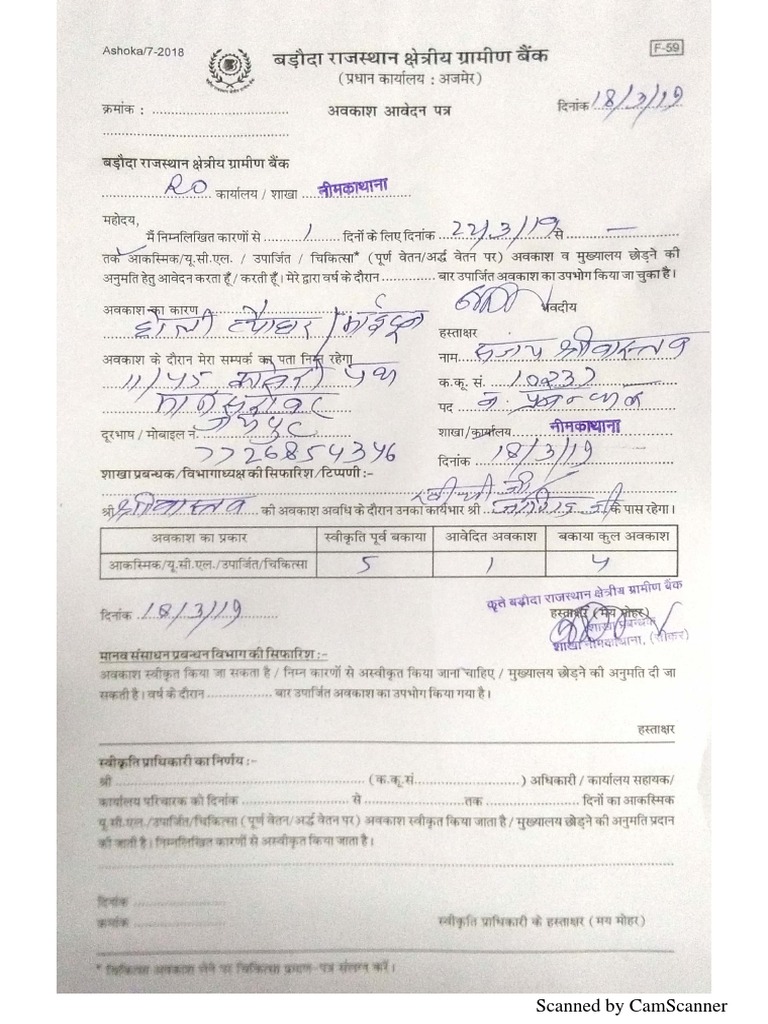 Ashoka/7-2018
F-59
बड़ौदा राजस्थान क्षेत्रीय ग्रामीण बैंक
(प्रधान कार्यालय : अजमेर)
क्रमांक : ............................
अवकाश आवेदन पत्र
दिनांक 18/3/19
बड़ौदा राजस्थान क्षेत्रीय ग्रामीण बैंक
RO कार्यालय / शाखा नीमकाथाना
महोदय,
मैं निम्नलिखित कारणों से 1 दिनों के लिए दिनांक 22/3/19 से —
तक आकस्मिक/यू.सी.एल. / उपार्जित / चिकित्सा* (पूर्ण वेतन/अर्द्ध वेतन पर) अवकाश व मुख्यालय छोड़ने की
अनुमति हेतु आवेदन करता हूँ / करती हूँ। मेरे द्वारा वर्ष के दौरान .................... बार उपार्जित अवकाश का उपभोग किया जा चुका है।
अवकाश का कारण
भवदीय
होली त्यौहार /
हस्ताक्षर
नाम संजय श्रीवास्तव
अवकाश के दौरान मेरा सम्पर्क का पता निम्न रहेगा
11/45 कावेरी पथ
क.कू. सं. 10237
मानसरोवर
पद व. प्रबन्धक
जयपुर
दूरभाष / मोबाइल नं. 7726854346
शाखा/कार्यालय नीमकाथाना
दिनांक 18/3/19
शाखा प्रबन्धक/विभागाध्यक्ष की सिफारिश/टिप्पणी :-
श्री श्रीवास्तव की अवकाश अवधि के दौरान उनका कार्यभार श्री के पास रहेगा।
अवकाश का प्रकार स्वीकृति पूर्व बकाया आवेदित अवकाश बकाया कुल अवकाश
आकस्मिक/यू.सी.एल./उपार्जित/चिकित्सा 5 1 4
कृते बड़ौदा राजस्थान क्षेत्रीय ग्रामीण बैंक
दिनांक 18/3/19
हस्ताक्षर (मय मोहर)
शाखा प्रबन्धक
शाखा नीमकाथाना, (सीकर)
मानव संसाधन प्रबन्धन विभाग की सिफारिश :-
अवकाश स्वीकृत किया जा सकता है / निम्न कारणों से अस्वीकृत किया जाना चाहिए / मुख्यालय छोड़ने की अनुमति दी जा
सकती है। वर्ष के दौरान .................... बार उपार्जित अवकाश का उपभोग किया गया है।
हस्ताक्षर
स्वीकृति प्राधिकारी का निर्णय :-
श्री ........................................ (क.कू.सं.................... ) अधिकारी / कार्यालय सहायक/
कार्यालय परिचारक को दिनांक .................... से .................... तक .................... दिनों का आकस्मिक
यू.सी.एल./उपार्जित/चिकित्सा (पूर्ण वेतन/अर्द्ध वेतन पर) अवकाश स्वीकृत किया जाता है / मुख्यालय छोड़ने की अनुमति प्रदान
की जाती है। निम्नलिखित कारणों से अस्वीकृत किया जाता है।
दिनांक ....................
क्रमांक ....................
स्वीकृति प्राधिकारी के हस्ताक्षर (मय मोहर)
* चिकित्सा अवकाश लेने पर चिकित्सा प्रमाण-पत्र संलग्न करें।
Scanned by CamScanner